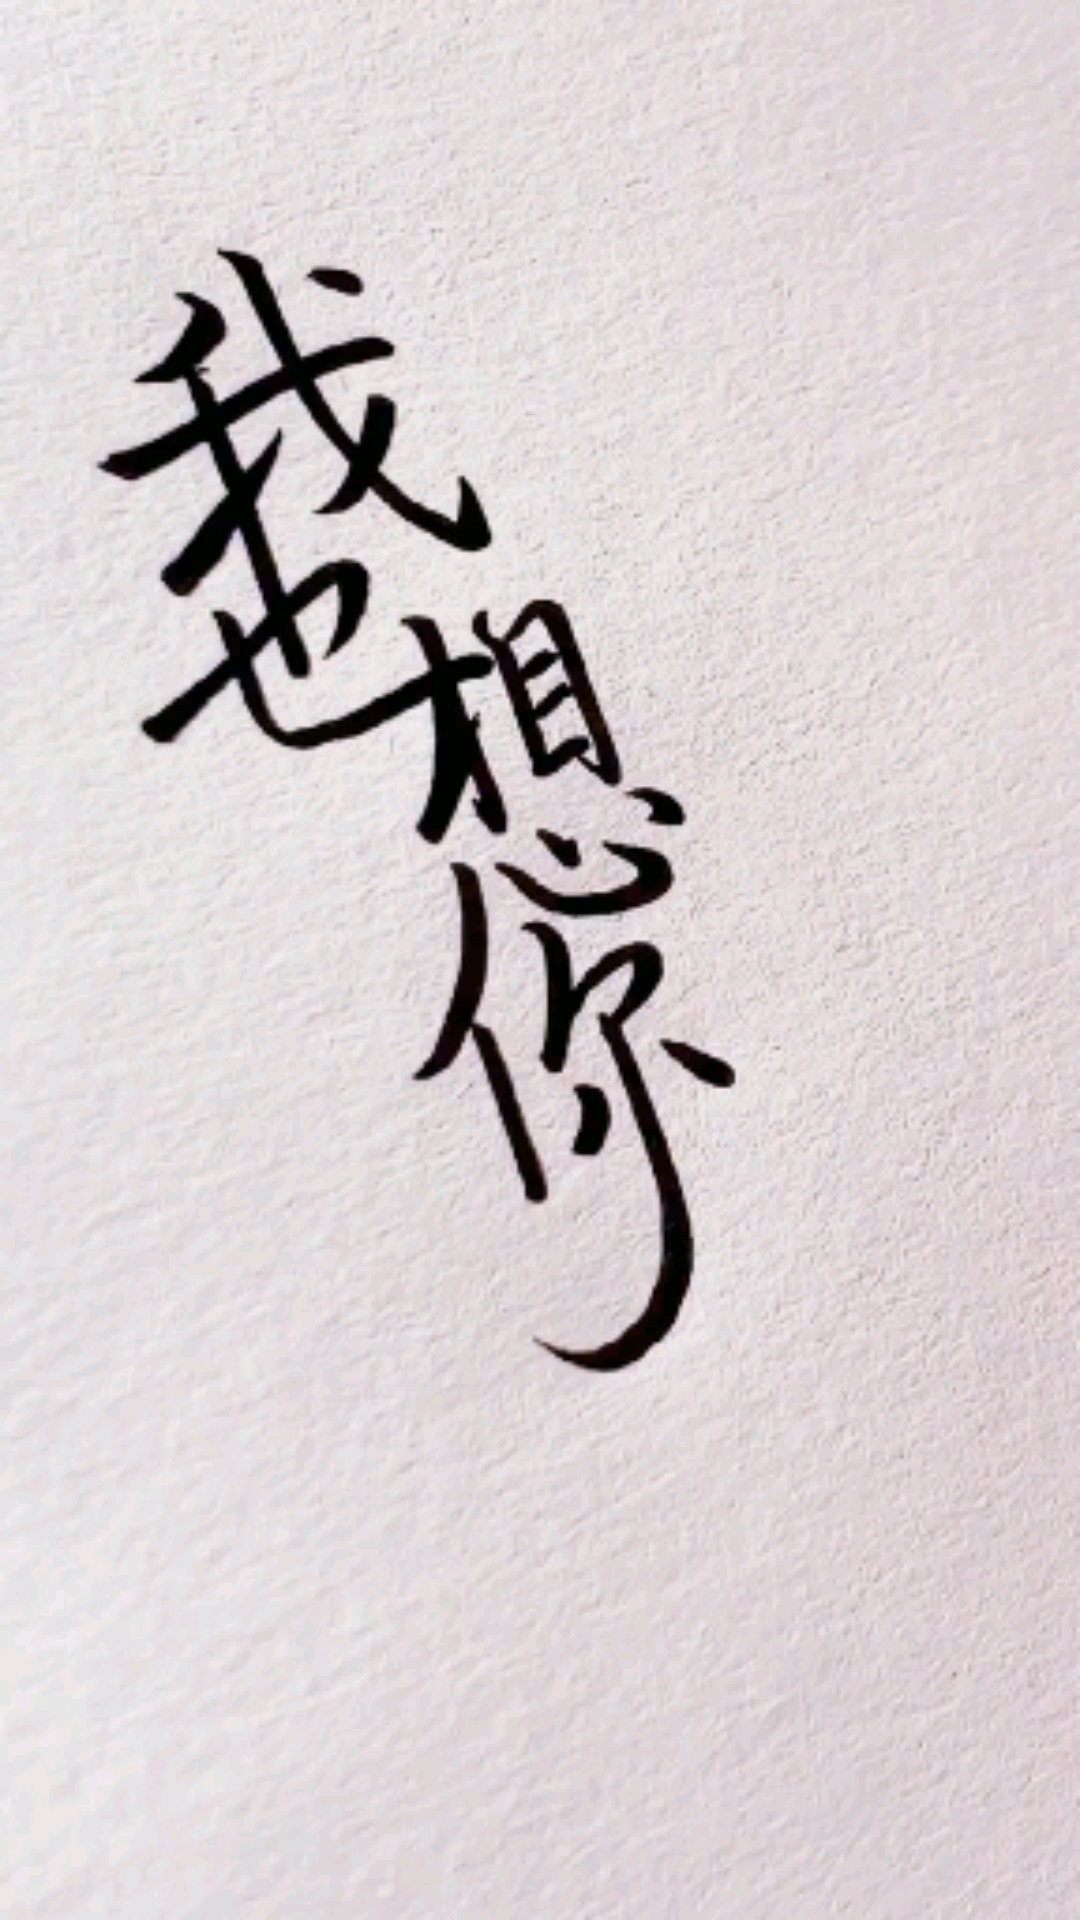 我也想你